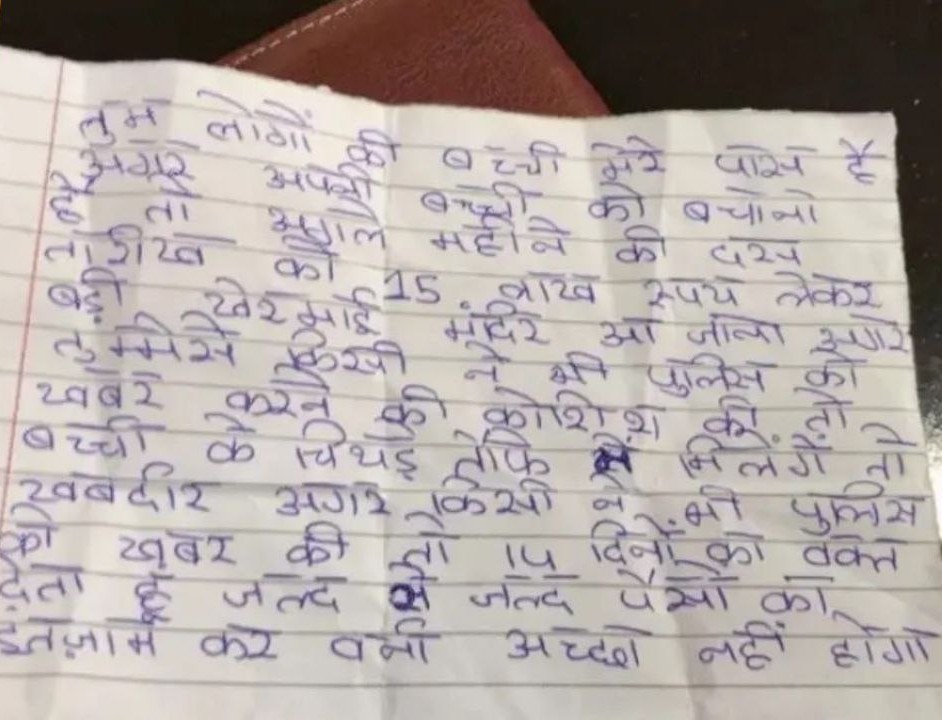 तुम लोगों की बच्ची मेरे पास है
अगर अपनी बच्ची को बचाना
है तो अगले महीने की दस
तारीख को 15 लाख रूपय लेकर
बड़ी खेरमाई मंदिर आ जाना अगर
तुम्मेसे किसी ने भी पुलिस को
खबर करने की कोशिश की तो
बच्ची के चिथड़े तोफे में मिलेंगें तो
खबर्दार अगर किसी ने भी पुलिस
को खबर की तो दिनों का वक्त
देता हूँ जल्द से जल्द पैसों का
इतज़ाम कर वर्ना अच्छा नहीं होगा